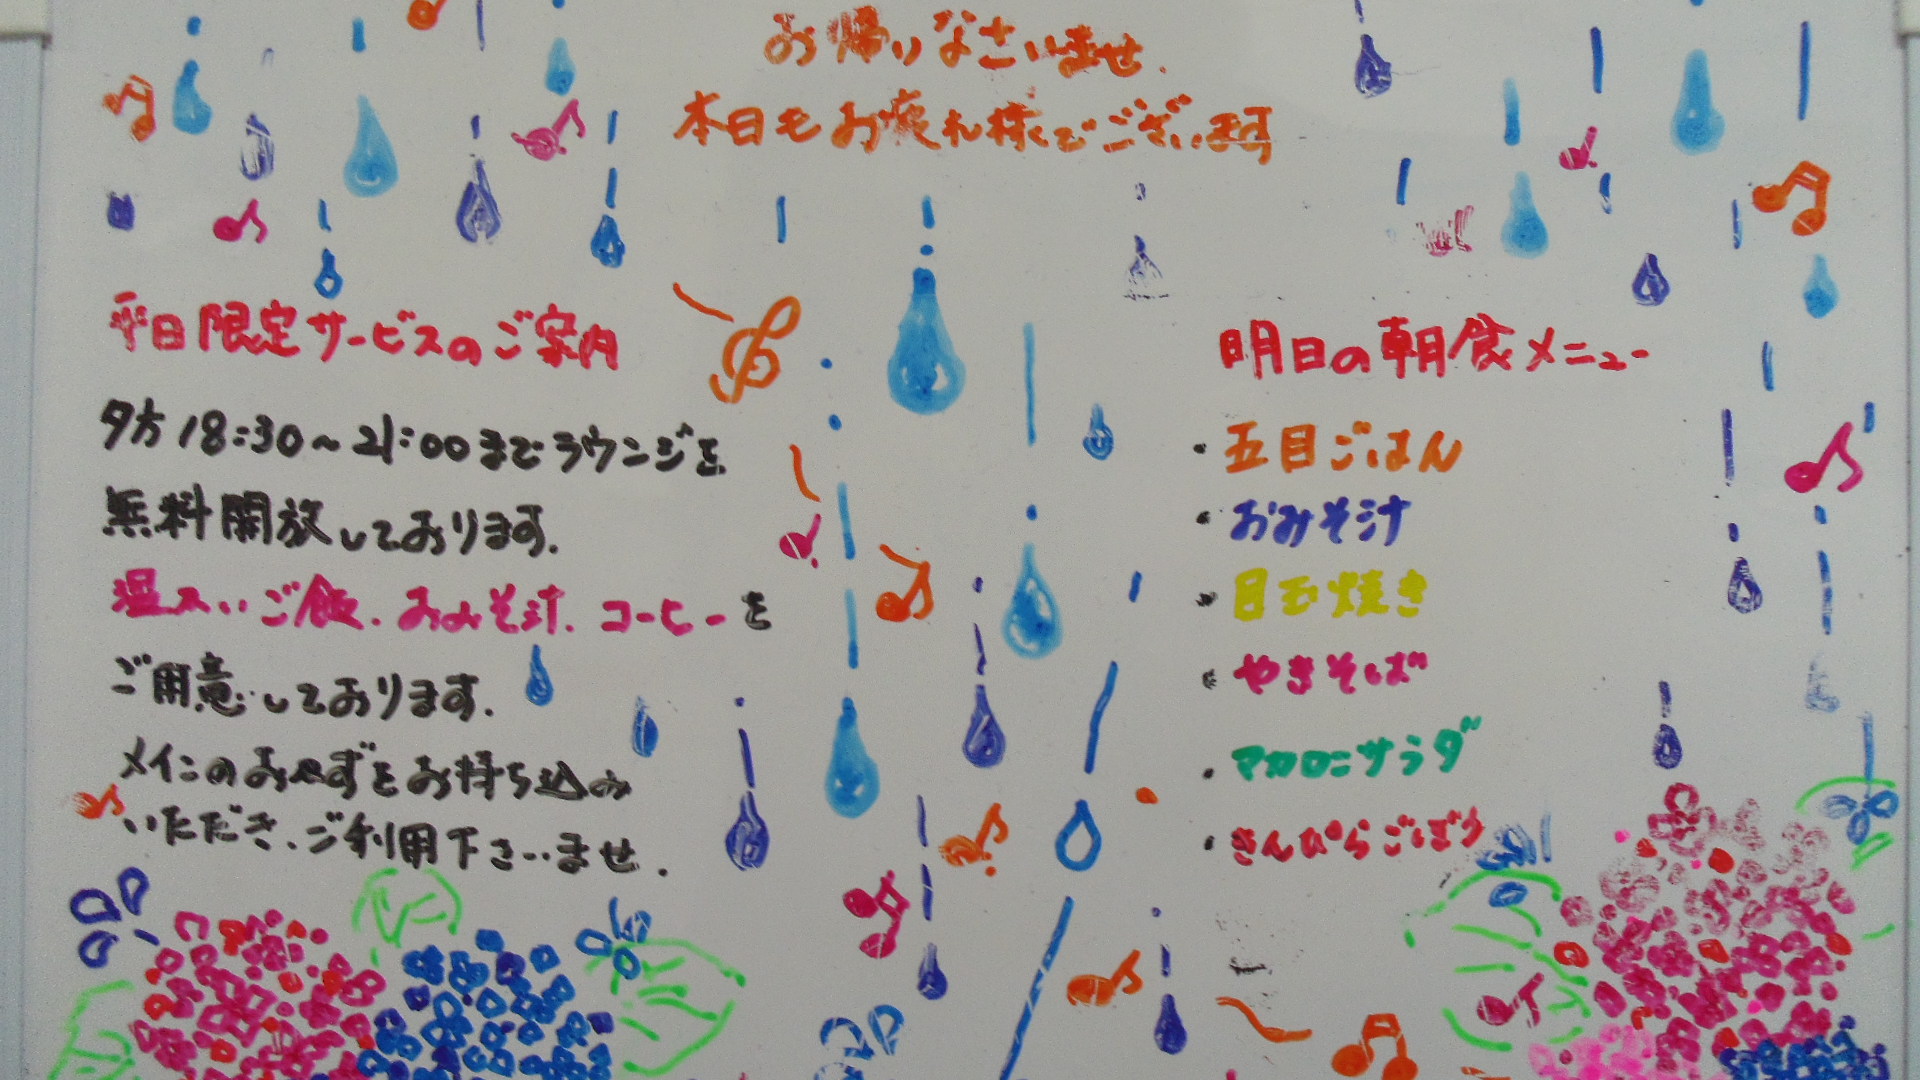 お帰りなさいませ.
本日もお疲れ様でございます
平日限定サービスのご案内
夕方18:30~21:00までラウンジを
無料開放しております.
温かいご飯.おみそ汁.コーヒーを
ご用意しております.
メインのおかずをお持ち込み
いただき.ご利用下さいませ.
明日の朝食メニュー
・五目ごはん
・おみそ汁
・目玉焼き
・やきそば
・マカロニサラダ
・きんぴらごぼう